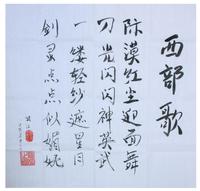 西部歌
漠红尘迎面舞
刀光闪闪神英武
一缕轻纱遮星目
剑灵点点似媚